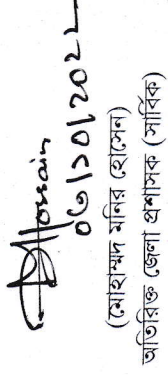 Hossain
০৩/১০/২০২২
(মোহাম্মদ মনির হোসেন)
অতিরিক্ত জেলা প্রশাসক (সার্বিক)